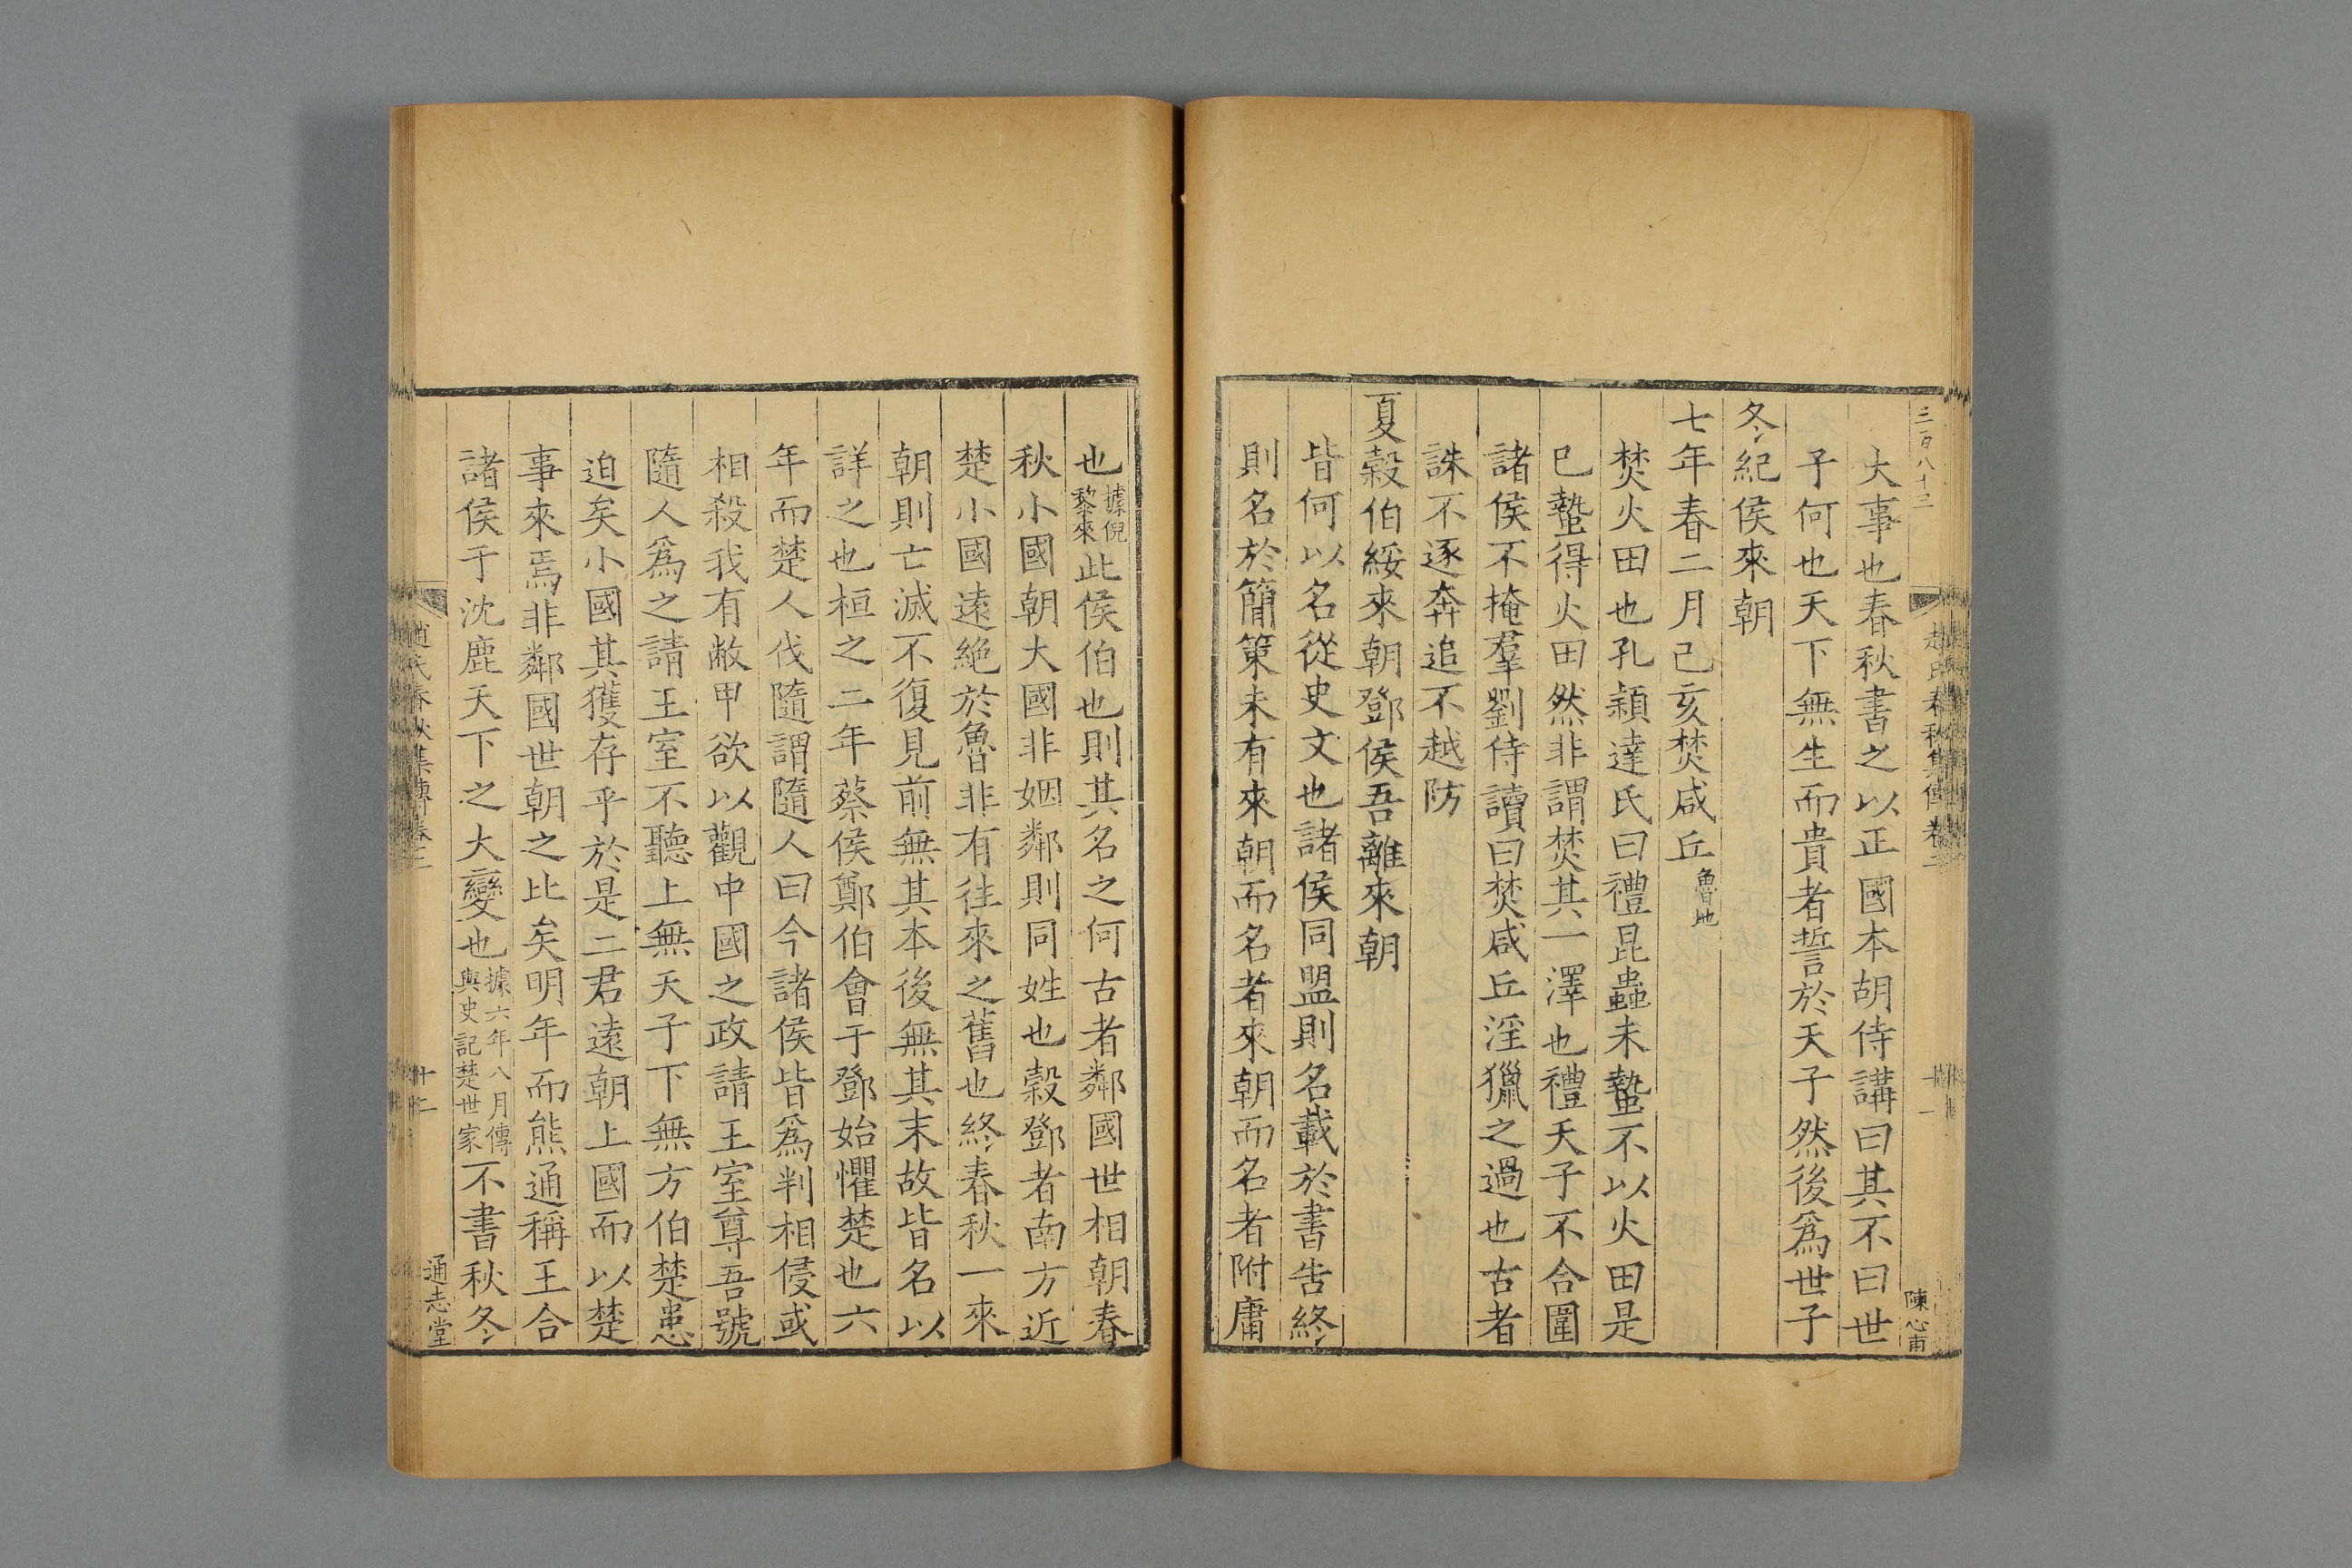 三百八十三
大事也春秋書之以正國本胡侍講曰其不曰世
子何也天下無生而貴者誓於天子然後爲世子
冬紀侯來朝
七年春二月己亥焚咸丘魯地
焚火田也孔穎達氏曰禮昆蟲未蟄不以火田是
已蟄得火田然非謂焚其一澤也禮天子不合圍
諸侯不掩羣劉侍讀曰焚咸丘淫獵之過也古者
誅不逐奔追不越防
夏穀伯綏來朝鄧侯吾離來朝
皆何以名從史文也諸侯同盟則名載於書告終
則名於簡策未有來朝而名者來朝而名者附庸
趙氏春秋集傳卷二
十一
陳心甫
也據倪黎來此侯伯也則其名之何古者鄰國世相朝春
秋小國朝大國非姻鄰則同姓也穀鄧者南方近
楚小國遠絕於魯非有往來之舊也終春秋一來
朝則亡滅不復見前無其本後無其末故皆名以
詳之也桓之二年蔡侯鄭伯會于鄧始懼楚也六
年而楚人伐隨謂隨人曰今諸侯皆爲判相侵或
相殺我有敝甲欲以觀中國之政請王室尊吾號
隨人爲之請王室不聽上無天子下無方伯楚患
迫矣小國其獲存乎於是二君遠朝上國而以楚
事來焉非鄰國世朝之比矣明年而熊通稱王合
諸侯于沈鹿天下之大變也據六年八月傳與史記楚世家不書秋冬
趙氏春秋集傳卷二
十二
通志堂